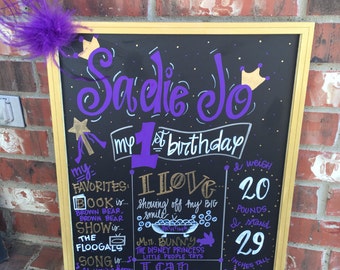 Sadie Jo
my 1st birthday
my
FAVORITES:
BOOK IS
BROWN BEAR,
BROWN BEAR
SHOW IS
THE
FLOOGALS
SONG IS
I LOVE
Showing off my BIG
smile
Mr. BUNNY
THE DISNEY PRINCESS
LITTLE PEOPLE TOYS
I CAN
I WEIGH
20
POUNDS
I stand
29
inches tall